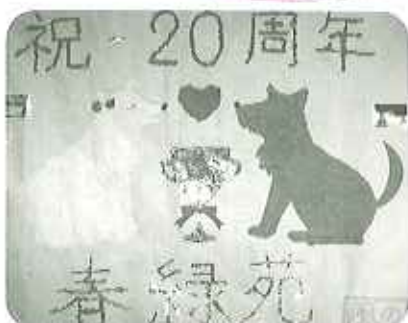 祝 20周年
春緑苑